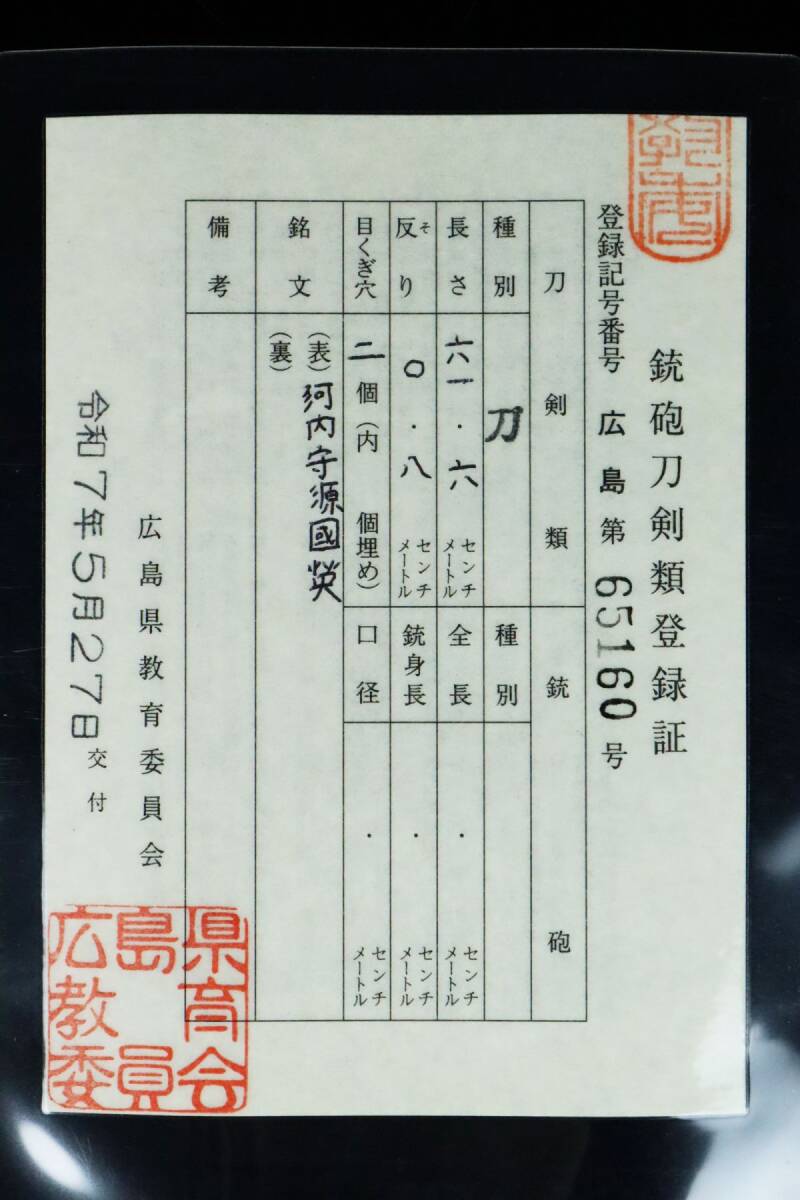 銃砲刀剣類登録証
登録記号番号 広島第65160号
刀剣類
種別 刀
長さ 六一・六 センチメートル
反り そ 〇・八 センチメートル
目くぎ穴 二個(内 個埋め)
銘文 (表)河内守源國英
(裏)
備考
銃砲
種別
全長 ・ センチメートル
銃身長 ・ センチメートル
口径 ・ センチメートル
広島県教育委員会
令和7年5月27日交付
広島県
教育
委員会